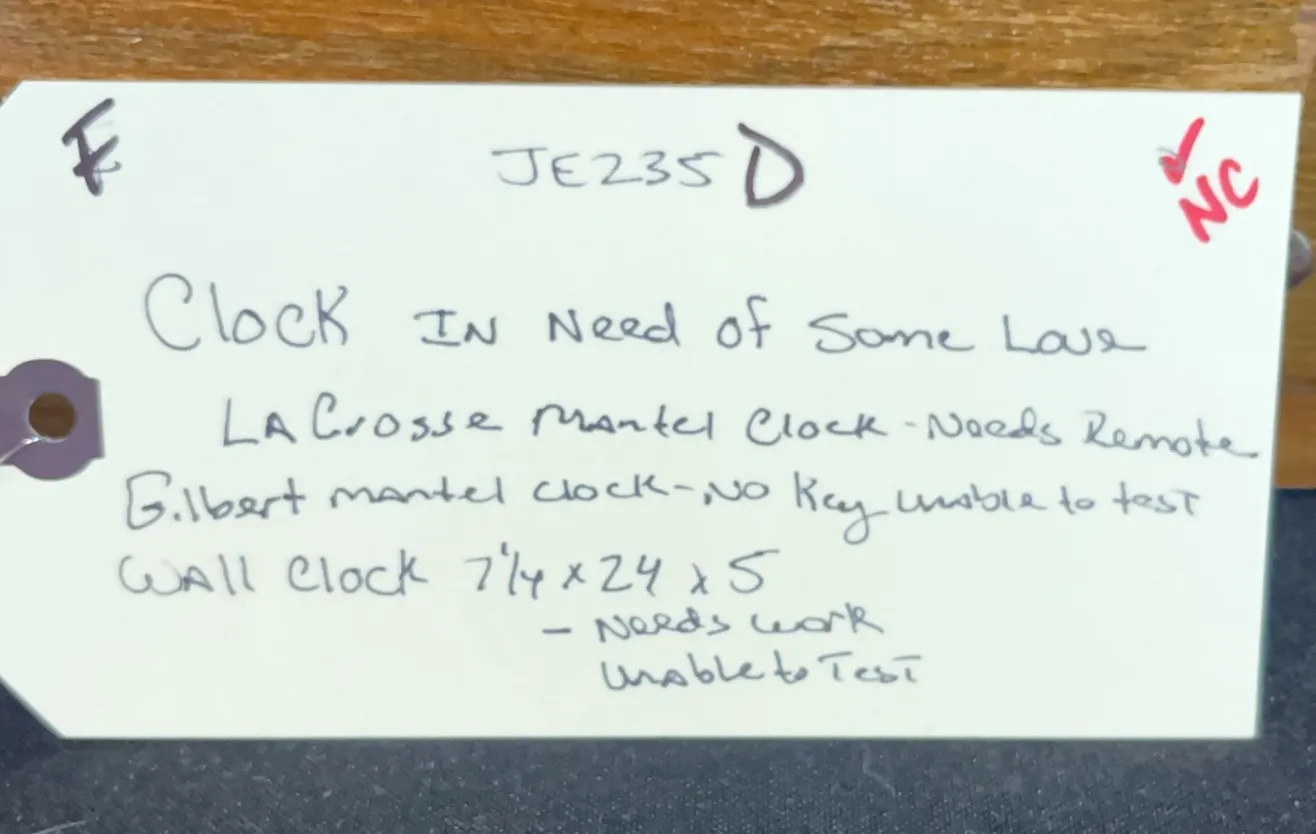 F
JE235 D
✓
NC
Clock IN Need of Some Love
LACrosse Mantel Clock - Needs Remote
Gilbert mantel clock - No Key unable to test
WAll Clock 7 1/4 x 24 x 5
- Needs work
Unable to Test